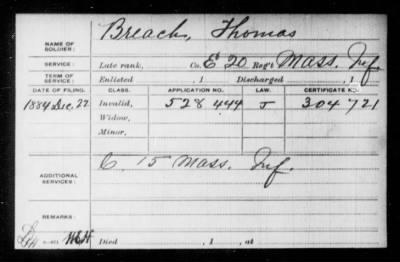 NAME OF SOLDIER: Breach, Thomas
SERVICE: Late rank, Co. E 20 Reg't Mass. Inf.
TERM OF SERVICE: Enlisted , 1 Discharged , 1
DATE OF FILING. CLASS. APPLICATION NO. LAW. CERTIFICATE NO.
1884 Dec. 22 Invalid, 528 444 J 304 721
Widow,
Minor,
ADDITIONAL SERVICES: C. 15 Mass. Inf.
REMARKS:
Died , 1 , at